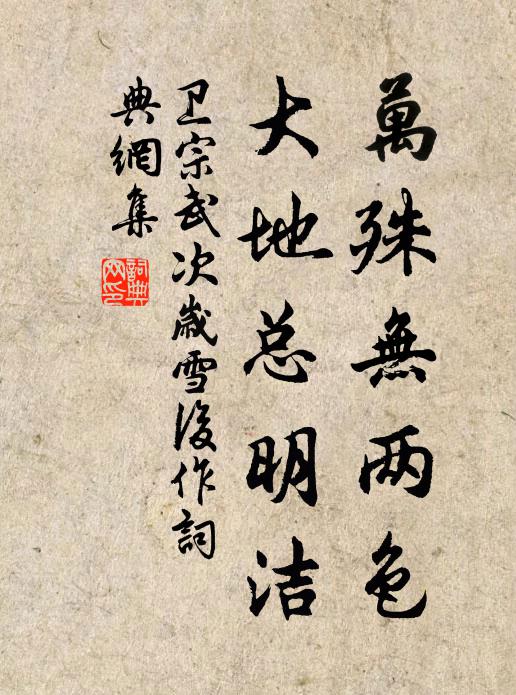 萬殊無两色
大地总明洁
卫宗武次歲雪後作詞
典網集
詞典
网印